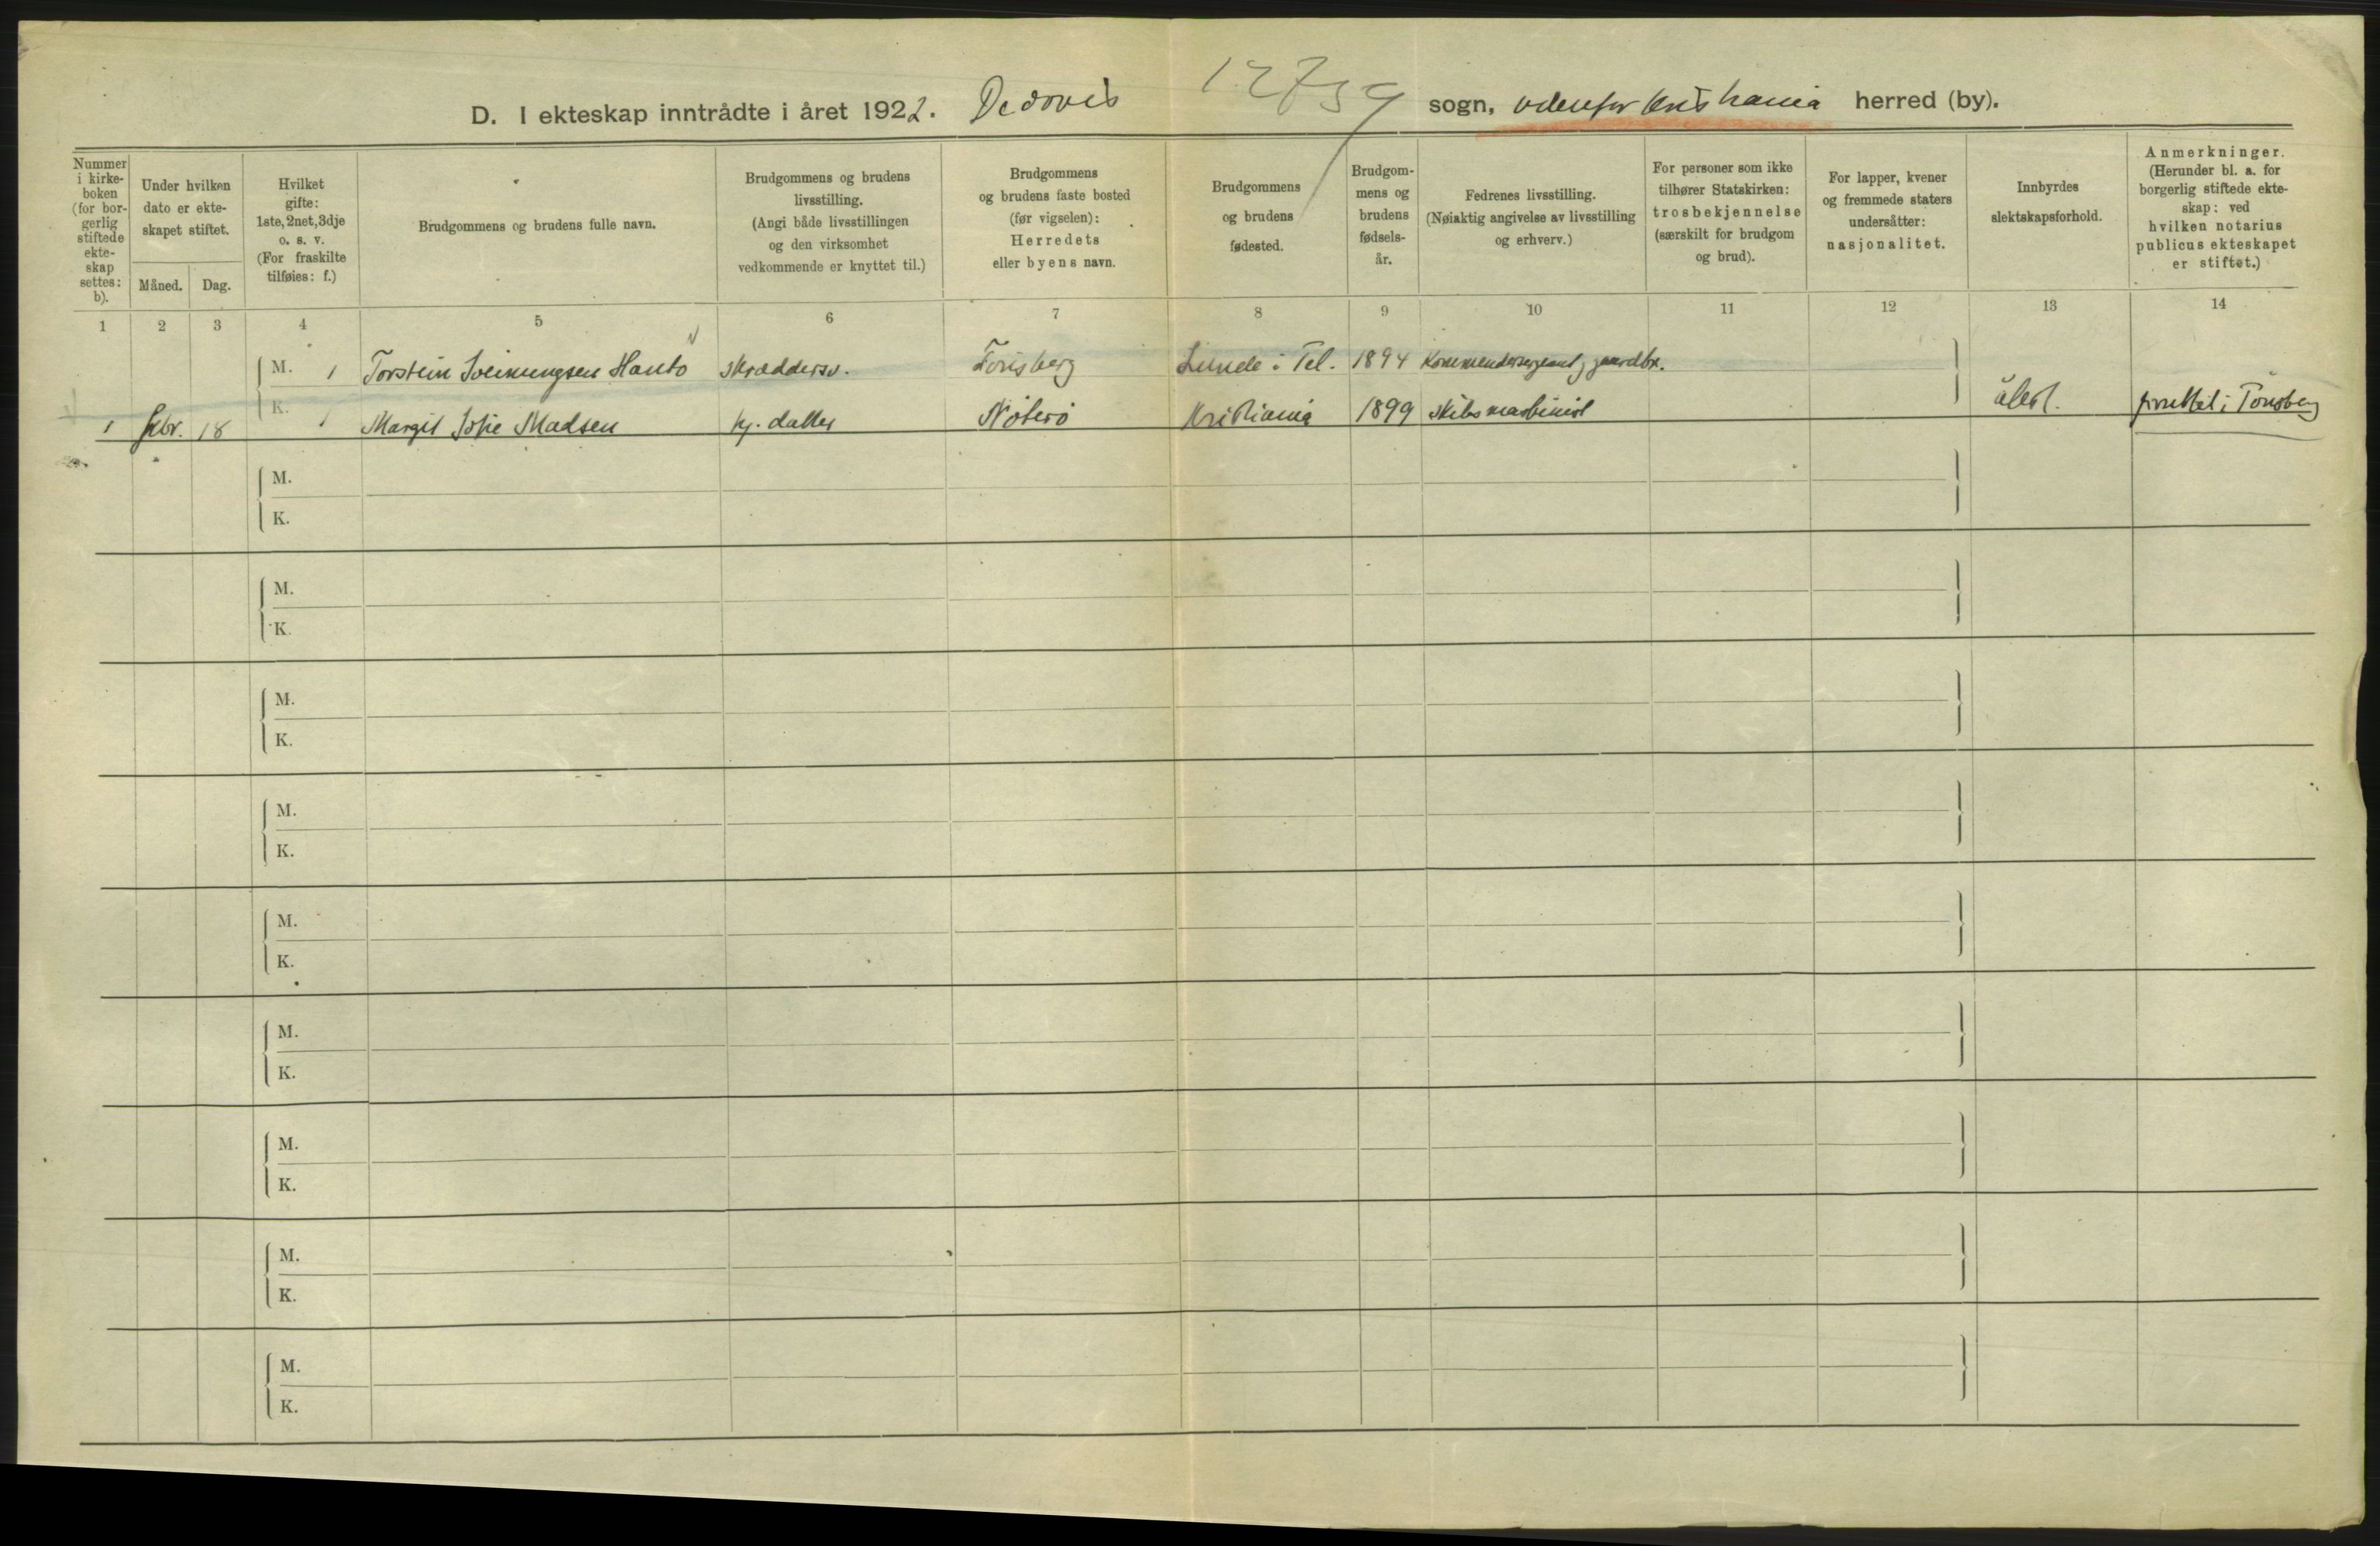 D. I ekteskap inntrådte i året 1922. Dedøves 12759 sogn, udenfor Kristiania herred (by).
Nummer i kirke-boken (for bor-gerlig stiftede ekte-skap settes: b).
Under hvilken dato er ekte-skapet stiftet.
Måned. Dag.
Hvilket gifte: 1ste, 2net, 3dje o. s. v. (For fraskilte tilføies: f.)
Brudgommens og brudens fulle navn.
Brudgommens og brudens livsstilling. (Angi både livsstillingen og den virksomhet vedkommende er knyttet til.)
Brudgommens og brudens faste bosted (før vigselen): Herredets eller byens navn.
Brudgommens og brudens fødested.
Brudgom-mens og brudens fødsels-år.
Fedrenes livsstilling. (Nøiaktig angivelse av livsstilling og erhverv.)
For personer som ikke tilhører Statskirken: trosbekjennelse (særskilt for brudgom og brud).
For lapper, kvener og fremmede staters undersåtter: nasjonalitet.
Innbyrdes slektskapsforhold.
Anmerkninger. (Herunder bl. a. for borgerlig stiftede ekte-skap: ved hvilken notarius publicus ekteskapet er stiftet.)
1 2 3 4 5 6 7 8 9 10 11 12 13 14
M. 1 Torstein Sveinungsen Hanto skræddersv. Tønsberg Lunde i Tel. 1894 Kommandersergeant, gaardbr.
1 febr. 18 K. 1 Margit Sofie Madsen hj. datter Nøterø Kristiania 1899 skibsmaskinist ubesl. forrettet i Tønsberg
M.
K.
M.
K.
M.
K.
M.
K.
M.
K.
M.
K.
M.
K.
M.
K.
M.
K.